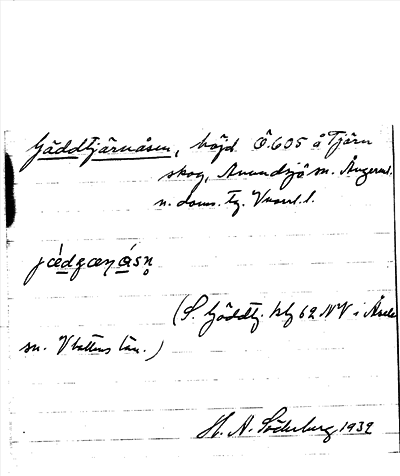 Gäddtjärnåsen, höjd Ö.605 å Tjärn
skog, Anundsjö sn. Ångerml.
n. doms. Tg. Vnorrl. l.
jǽdgæṇǻsn̥
(S. Gäddtj. kbg 62 NV i Åsele
sn. Vbottens län.)
H. A. Söderberg 1932